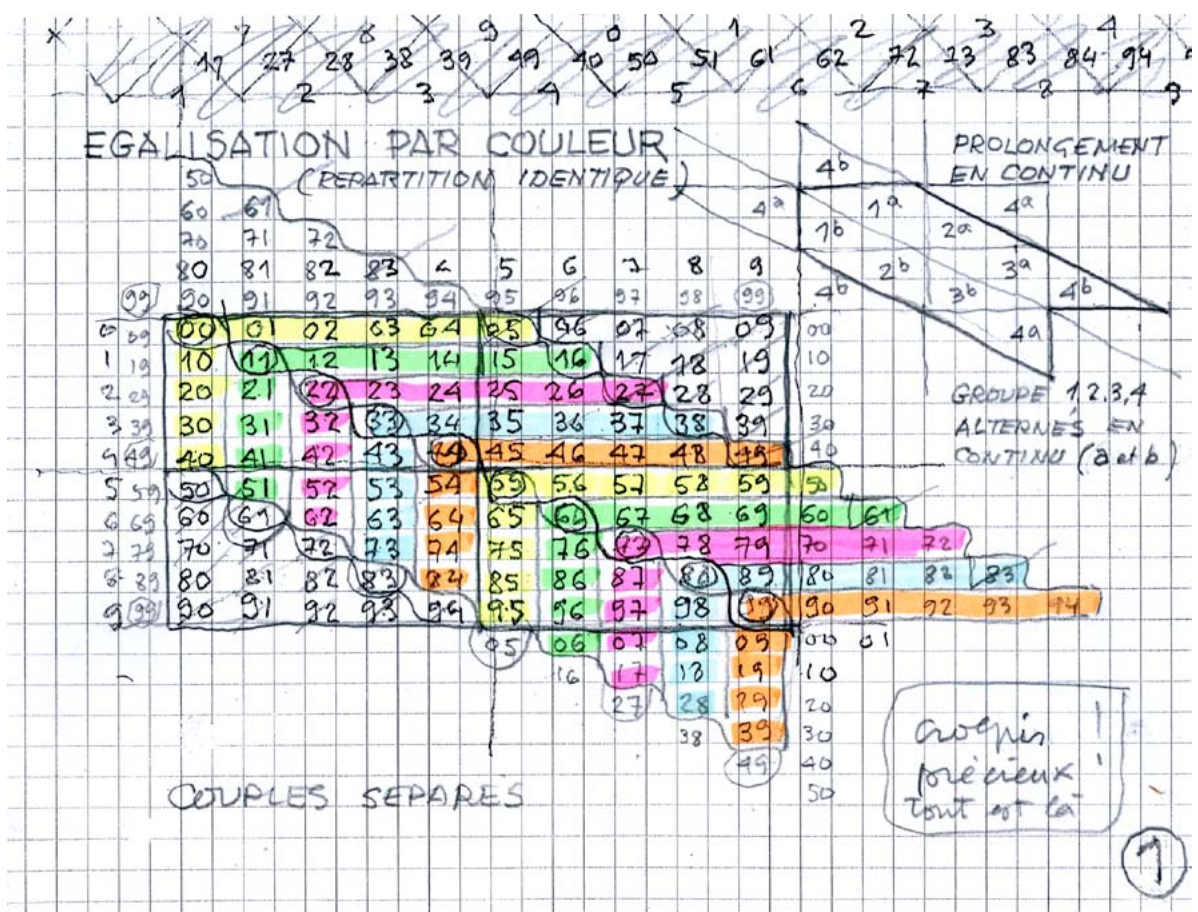 7 8 9 0 1 2 3 4
17 27 28 38 39 49 40 50 51 61 62 72 73 83 84 94
1 2 3 4 5 6 7 8 9
EGALISATION PAR COULEUR
(REPARTITION IDENTIQUE)
PROLONGEMENT
EN CONTINU
4b
4a 1a 4a
1b 2a
2b 3a
4b 3b 4b
4a
GROUPE 1,2,3,4
ALTERNÉS EN
CONTINU (a et b)
50
60 61
70 71 72
80 81 82 83 4 5 6 7 8 9
99 90 91 92 93 94 95 96 97 98 99
0 09 00 01 02 03 04 05 06 07 08 09 00
1 19 10 11 12 13 14 15 16 17 18 19 10
2 29 20 21 22 23 24 25 26 27 28 29 20
3 39 30 31 32 33 34 35 36 37 38 39 30
4 49 40 41 42 43 44 45 46 47 48 49 40
5 59 50 51 52 53 54 55 56 57 58 59 50
6 69 60 61 62 63 64 65 66 67 68 69 60 61
7 79 70 71 72 73 74 75 76 77 78 79 70 71 72
8 89 80 81 82 83 84 85 86 87 88 89 80 81 82 83
9 99 90 91 92 93 94 95 96 97 98 99 90 91 92 93 94
05 06 07 08 09 00 01
16 17 18 19 10
27 28 29 20
38 39 30
49 40
50
COUPLES SEPARES
croquis !
précieux !
tout est là
1